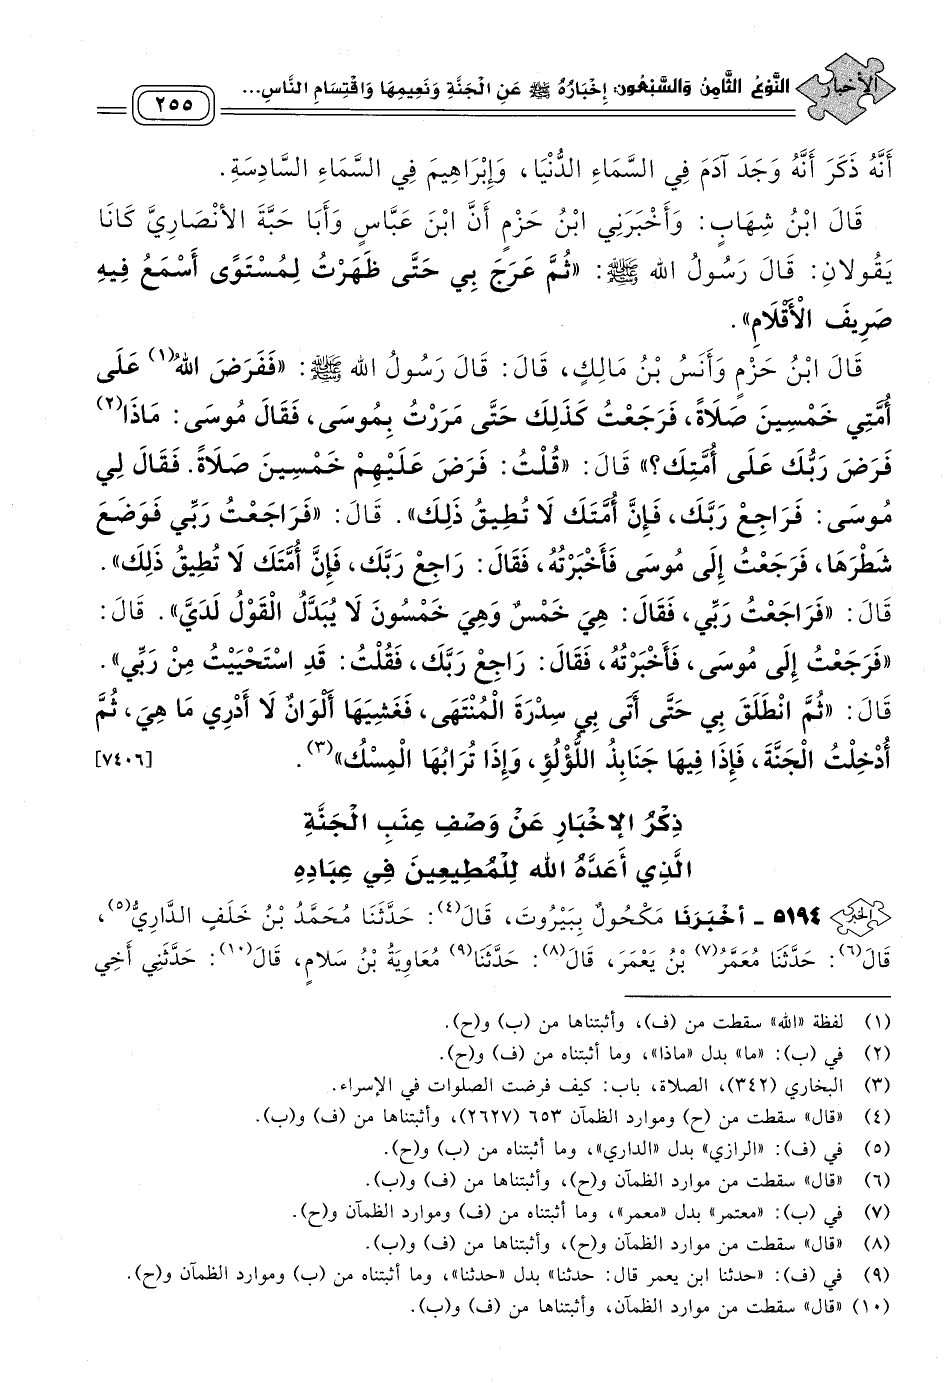 الأخبار
النَّوْعُ الثَّامِنُ وَالسَّبْعُونَ: إِخْبَارُهُ ﷺ عَنِ الْجَنَّةِ وَنَعِيمِهَا وَاقْتِسَامِ النَّاسِ...
٢٥٥
أَنَّهُ ذَكَرَ أَنَّهُ وَجَدَ آدَمَ فِي السَّمَاءِ الدُّنْيَا، وَإِبْرَاهِيمَ فِي السَّمَاءِ السَّادِسَةِ.
قَالَ ابْنُ شِهَابٍ: وَأَخْبَرَنِي ابْنُ حَزْمٍ أَنَّ ابْنَ عَبَّاسٍ وَأَبَا حَبَّةَ الأَنْصَارِيَّ كَانَا
يَقُولَانِ: قَالَ رَسُولُ اللهِ ﷺ: «ثُمَّ عَرَجَ بِي حَتَّى ظَهَرْتُ لِمُسْتَوًى أَسْمَعُ فِيهِ
صَرِيفَ الْأَقْلَامِ».
قَالَ ابْنُ حَزْمٍ وَأَنَسُ بْنُ مَالِكٍ، قَالَ: قَالَ رَسُولُ اللهِ ﷺ: «فَفَرَضَ اللهُ(١) عَلَى
أُمَّتِي خَمْسِينَ صَلَاةً، فَرَجَعْتُ كَذَلِكَ حَتَّى مَرَرْتُ بِمُوسَى، فَقَالَ مُوسَى: مَاذَا(٢)
فَرَضَ رَبُّكَ عَلَى أُمَّتِكَ؟» قَالَ: «قُلْتُ: فَرَضَ عَلَيْهِمْ خَمْسِينَ صَلَاةً. فَقَالَ لِي
مُوسَى: فَرَاجِعْ رَبَّكَ، فَإِنَّ أُمَّتَكَ لَا تُطِيقُ ذَلِكَ». قَالَ: «فَرَاجَعْتُ رَبِّي فَوَضَعَ
شَطْرَهَا، فَرَجَعْتُ إِلَى مُوسَى فَأَخْبَرْتُهُ، فَقَالَ: رَاجِعْ رَبَّكَ، فَإِنَّ أُمَّتَكَ لَا تُطِيقُ ذَلِكَ».
قَالَ: «فَرَاجَعْتُ رَبِّي، فَقَالَ: هِيَ خَمْسٌ وَهِيَ خَمْسُونَ لَا يُبَدَّلُ الْقَوْلُ لَدَيَّ». قَالَ:
«فَرَجَعْتُ إِلَى مُوسَى، فَأَخْبَرْتُهُ، فَقَالَ: رَاجِعْ رَبَّكَ، فَقُلْتُ: قَدِ اسْتَحْيَيْتُ مِنْ رَبِّي».
قَالَ: «ثُمَّ انْطَلَقَ بِي حَتَّى أَتَى بِي سِدْرَةَ الْمُنْتَهَى، فَغَشِيَهَا أَلْوَانٌ لَا أَدْرِي مَا هِيَ، ثُمَّ
أُدْخِلْتُ الْجَنَّةَ، فَإِذَا فِيهَا جَنَابِذُ اللُّؤْلُؤِ، وَإِذَا تُرَابُهَا الْمِسْكُ»(٣). [٧٤٠٦]
ذِكْرُ الإِخْبَارِ عَنْ وَصْفِ عِنَبِ الْجَنَّةِ
الَّذِي أَعَدَّهُ اللهُ لِلْمُطِيعِينَ فِي عِبَادِهِ
٥١٩٤ - أَخْبَرَنَا مَكْحُولٌ بِبَيْرُوتَ، قَالَ(٤): حَدَّثَنَا مُحَمَّدُ بْنُ خَلَفٍ الدَّارِيُّ(٥)،
قَالَ(٦): حَدَّثَنَا مُعَمَّرُ(٧) بْنُ يَعْمَرَ، قَالَ(٨): حَدَّثَنَا(٩) مُعَاوِيَةُ بْنُ سَلَامٍ، قَالَ(١٠): حَدَّثَنِي أَخِي
(١) لفظة «الله» سقطت من (ف)، وأثبتناها من (ب) و(ح).
(٢) في (ب): «ما» بدل «ماذا»، وما أثبتناه من (ف) و(ح).
(٣) البخاري (٣٤٢)، الصلاة، باب: كيف فرضت الصلوات في الإسراء.
(٤) «قال» سقطت من (ح) وموارد الظمآن ٦٥٣ (٢٦٢٧)، وأثبتناها من (ف) و(ب).
(٥) في (ف): «الرازي» بدل «الداري»، وما أثبتناه من (ب) و(ح).
(٦) «قال» سقطت من موارد الظمآن و(ح)، وأثبتناها من (ف) و(ب).
(٧) في (ب): «معتمر» بدل «معمر»، وما أثبتناه من (ف) وموارد الظمآن و(ح).
(٨) «قال» سقطت من موارد الظمآن و(ح)، وأثبتناها من (ف) و(ب).
(٩) في (ف): «حدثنا ابن يعمر قال: حدثنا» بدل «حدثنا»، وما أثبتناه من (ب) وموارد الظمآن و(ح).
(١٠) «قال» سقطت من موارد الظمآن، وأثبتناها من (ف) و(ب).